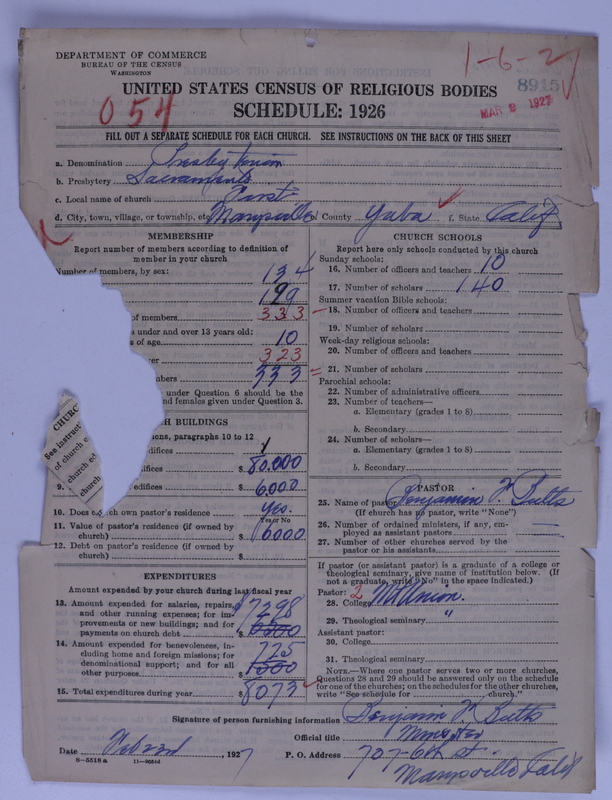 DEPARTMENT OF COMMERCE
BUREAU OF THE CENSUS
WASHINGTON
1-6-2
8915
MAR 8 1927
054
UNITED STATES CENSUS OF RELIGIOUS BODIES
SCHEDULE: 1926
FILL OUT A SEPARATE SCHEDULE FOR EACH CHURCH. SEE INSTRUCTIONS ON THE BACK OF THIS SHEET
a. Denomination Presbyterian
b. Presbytery Sacramento
c. Local name of church First
d. City, town, village, or township, etc. Marysville County Yuba f. State Calif
MEMBERSHIP
Report number of members according to definition of
member in your church
Number of members, by sex:
134
199
of members 333
under and over 13 years old:
s of age 10
er 323
mbers 333
under Question 6 should be the
d females given under Question 3.
CHURC
See instruct
of church e
church ed
church e
H BUILDINGS
ions, paragraphs 10 to 12
difices 1
difices $ 80.000
9. edifices $ 6000
10. Does church own pastor's residence Yes.
Yes or No
11. Value of pastor's residence (if owned by
church) $ 6000
12. Debt on pastor's residence (if owned by
church) $
EXPENDITURES
Amount expended by your church during last fiscal year
13. Amount expended for salaries, repairs,
and other running expenses; for im-
provements or new buildings; and for
payments on church debt $ 7298
14. Amount expended for benevolences, in-
cluding home and foreign missions; for
denominational support; and for all
other purposes $ 775
15. Total expenditures during year $ 8073
CHURCH SCHOOLS
Report here only schools conducted by this church
Sunday schools:
16. Number of officers and teachers 10
17. Number of scholars 140
Summer vacation Bible schools:
18. Number of officers and teachers
19. Number of scholars
Week-day religious schools:
20. Number of officers and teachers
21. Number of scholars
Parochial schools:
22. Number of administrative officers
23. Number of teachers—
a. Elementary (grades 1 to 8)
b. Secondary
24. Number of scholars—
a. Elementary (grades 1 to 8)
b. Secondary
PASTOR
25. Name of pastor Benjamin F Butts
(If church has no pastor, write "None")
26. Number of ordained ministers, if any, em-
ployed as assistant pastors
27. Number of other churches served by the
pastor or his assistants
If pastor (or assistant pastor) is a graduate of a college or
theological seminary, give name of institution below. (If
not a graduate, write "No" in the space indicated.)
Pastor: 2
28. College Mt Union.
29. Theological seminary "
Assistant pastor:
30. College
31. Theological seminary
NOTE.—Where one pastor serves two or more churches,
Questions 28 and 29 should be answered only on the schedule
for one of the churches; on the schedules for the other churches,
write "See schedule for church."
Signature of person furnishing information Benjamin F. Butts
Official title Minister
Date , 1927 P. O. Address 707-6th St.
8—5518a 11—9054d Marysville Calif